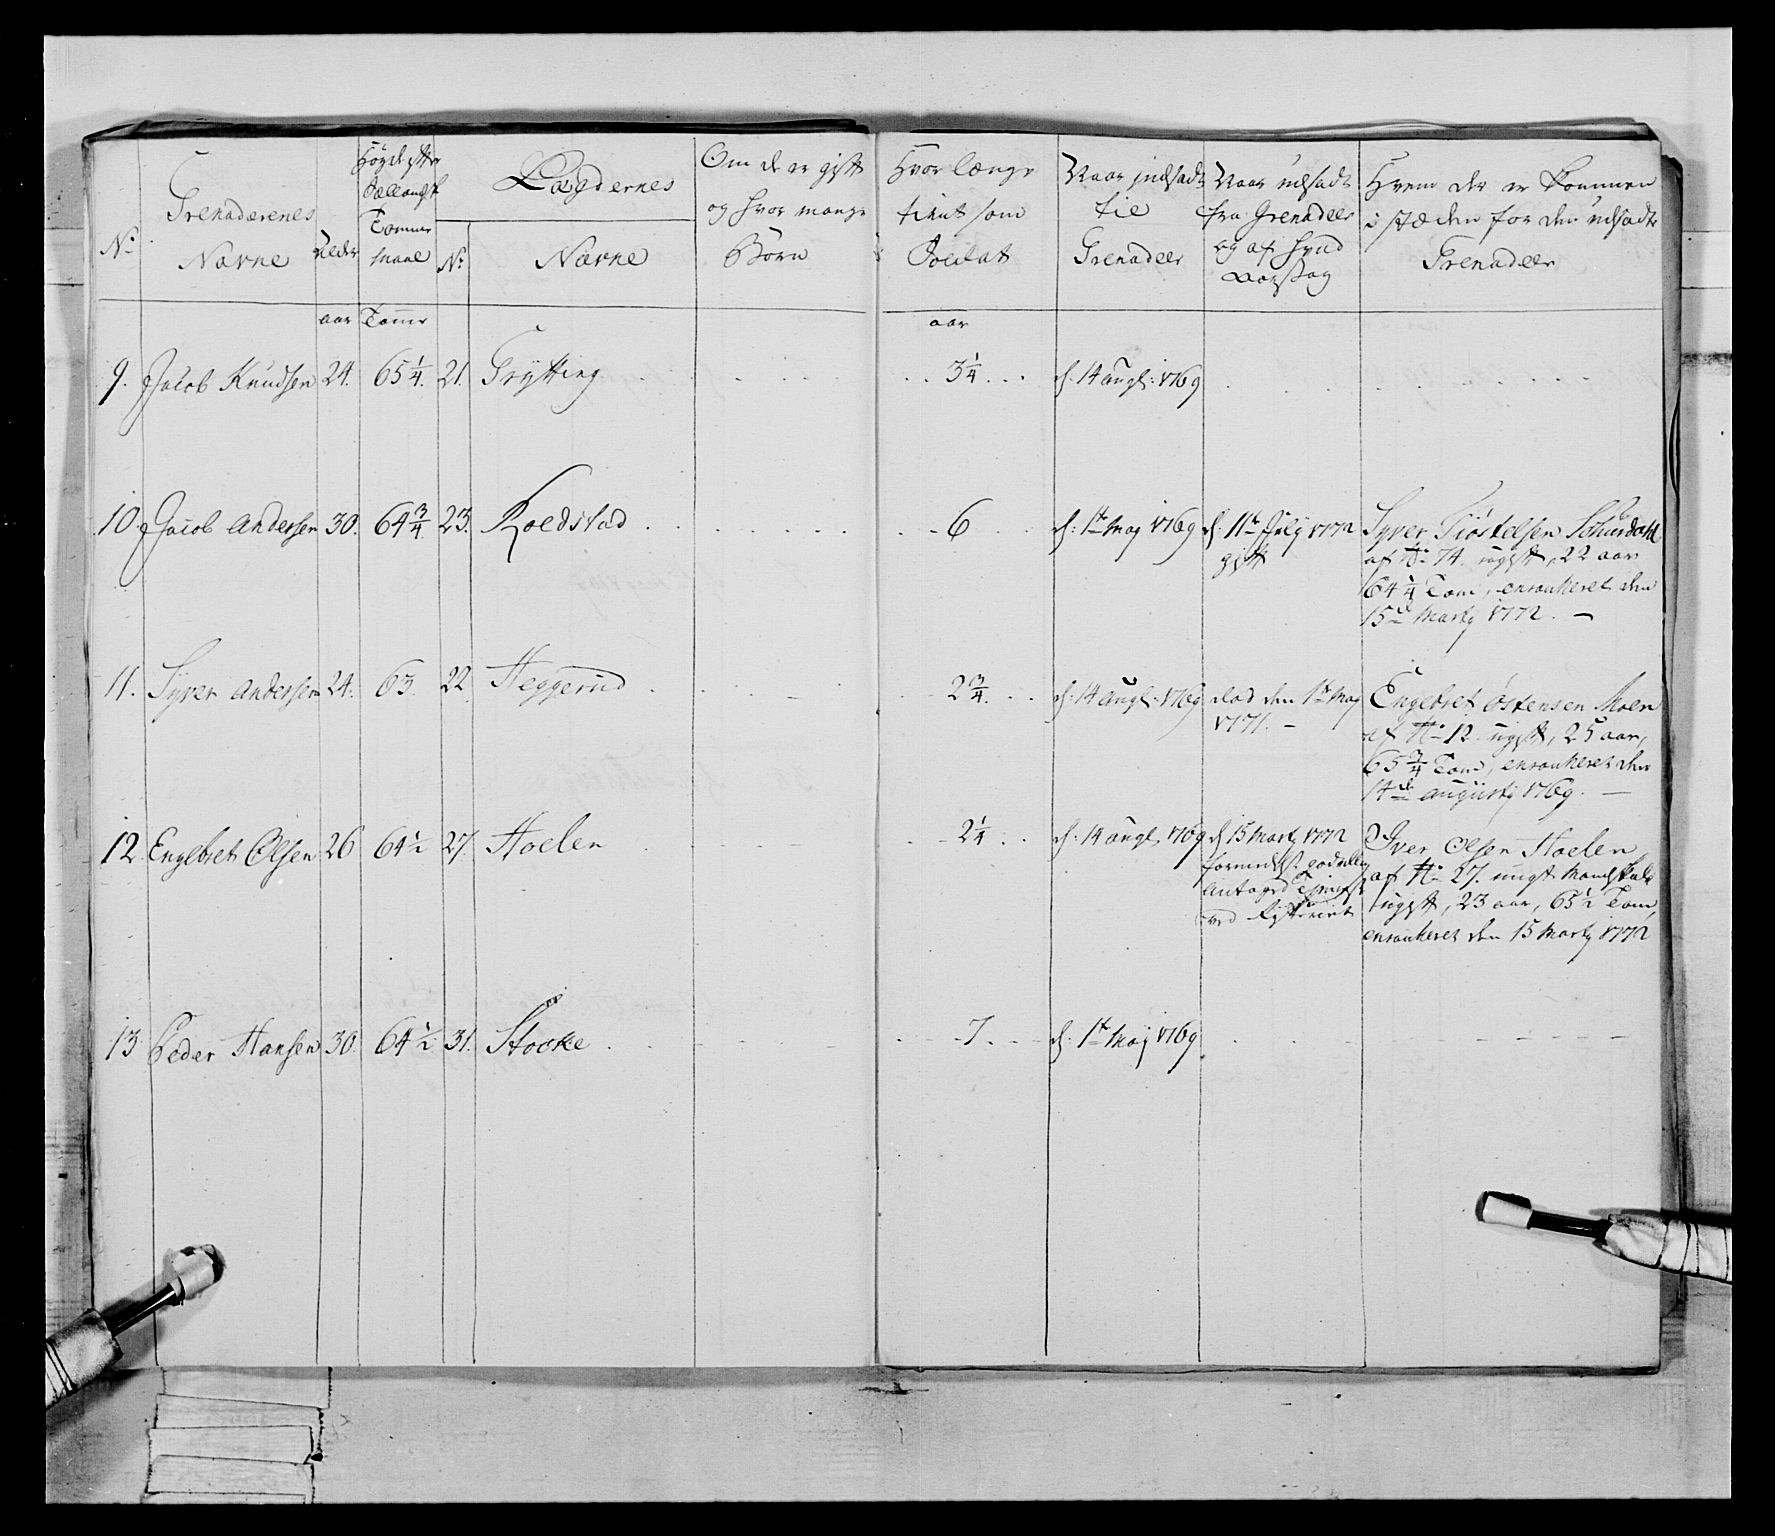 No
Grenaderenes
Navne
Alder
Høyde efter
Tomme
Maal
Lægdernes
No
Navne
Om de er gift
og hvor mange
Børn
Hvor længe
tient som
Soldat
Naar indsadt
til
Grenadeer
Naar udsadt
fra Grenadeer
og af hvad
Aarsag
Hvem der er kommen
i stæden for den udsadte
Grenadeer
aar Tomr
aar
9. Jacob Knudsen 24. 65 1/4. 21. Grytting 3 1/4 d: 14 Augs: 1769
10. Jacob Andersen 30. 64 3/4 23. Roedstad 6 d: 1te May 1769 d: 11te July 1772
gift
Syver Tiøstelsen
af No 74. ugift, 22 aar
64 1/4 Tom, enrouleret den
15de Marty 1772. —
11. Syver Andersen 24. 63. 22 Heggerud 2 3/4. d: 14 Augs: 1769 død den 1te May
1771. —
Engebret Østensen Moen
af No 12. ugift, 25 aar,
65 3/4 Tom, enrouleret den
14de Augusty 1769. —
12. Engebret Olsen 26 64 1/2 27. Hoelen 2 1/4 d: 14 Augs. 1769 d 15 Marty 1772
formedelst godvillig
antaged
ved
Iver Olsen Hoelen
af No 27. ungt Mandskab
ugift, 23 aar, 65 1/2 Tom,
enrouleret den 15 Marty 1772
13 Peder Hansen 30. 64 1/2 31. Stocke 7. d: 1te May 1769